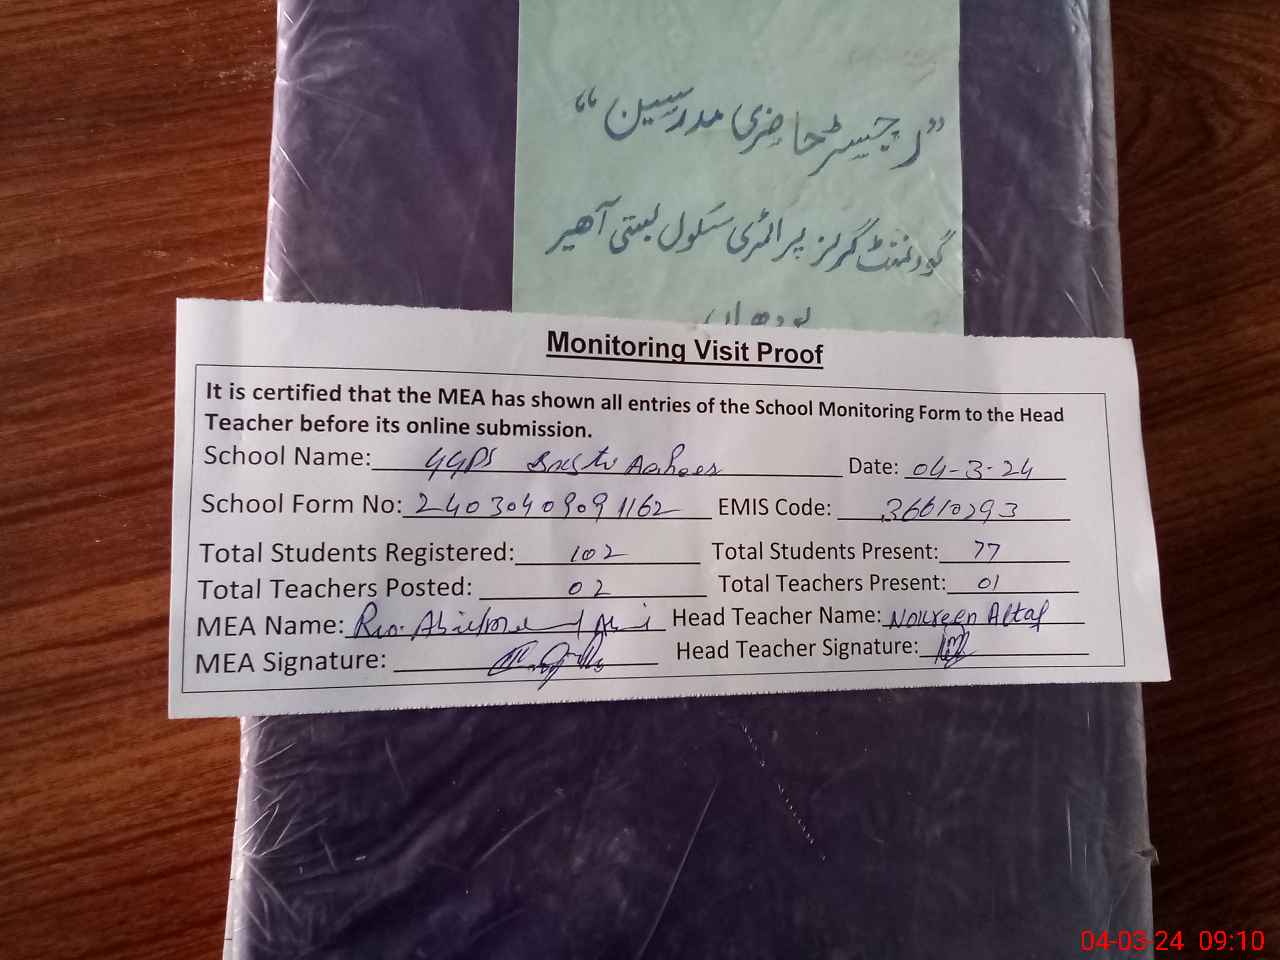 ”رجسٹر حاضری مدرسین“
گورنمنٹ گرلز پرائمری سکول بستی آھیر
لودھراں
Monitoring Visit Proof
It is certified that the MEA has shown all entries of the School Monitoring Form to the Head
Teacher before its online submission.
School Name: GGPS Basti Aaheer Date: 04-3-24
School Form No: 24030409091162 EMIS Code: 36610293
Total Students Registered: 102 Total Students Present: 77
Total Teachers Posted: 02 Total Teachers Present: 01
MEA Name: Head Teacher Name: Noureen Altaf
MEA Signature: Head Teacher Signature:
04-03-24 09:10